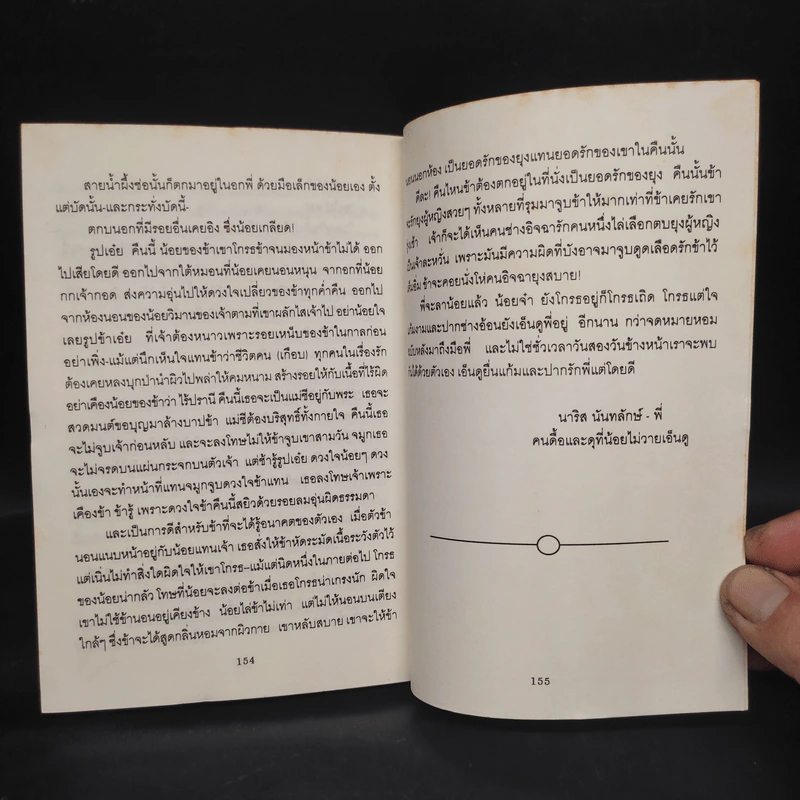 สายน้ำผึ้งช่อนั้นก็ตกมาอยู่ในอกพี่ ด้วยมือเล็กของน้อยเอง ตั้ง
แต่บัดนั้น-และกระทั่งบัดนี้-
ตกบนอกที่มีรอยอื่นเคยอิง ซึ่งน้อยเกลียด!
รูปเอ๋ย คืนนี้ น้อยของข้าเขาโกรธข้าจนมองหน้าข้าไม่ได้ ออก
ไปเสียโดยดี ออกไปจากใต้หมอนที่น้อยเคยนอนหนุน จากอกที่น้อย
กกเจ้ากอด ส่งความอุ่นไปให้ดวงใจเปลี่ยวของข้าทุกค่ำคืน ออกไป
จากห้องนอนของน้อยวิมานของเจ้าตามที่เขาผลักไสเจ้าไป อย่าน้อยใจ
เลยรูปข้าเอ๋ย ที่เจ้าต้องหนาวเพราะรอยเหน็บของข้าในกาลก่อน
อย่าเพิ่ง-แม้แต่นึกเห็นใจแทนข้าว่าชีวิตคน (เกือบ) ทุกคนในเรื่องรัก
ต้องเคยหลงบุกป่านำผิวไปพล่าให้คมหนาม สร้างรอยให้กับเนื้อที่ไร้ผิด
อย่าเคืองน้อยของข้าว่า ไร้ปรานี คืนนี้เธอจะเป็นแม่ชีอยู่กับพระ เธอจะ
สวดมนต์ขอบุญมาล้างบาปข้า แม่ชีต้องบริสุทธิ์ทั้งกายใจ คืนนี้เธอ
จะไม่จูบเจ้าก่อนหลับ และจะลงโทษไม่ให้ข้าจูบเขาสามวัน จมูกเธอ
จะไม่จรดบนแผ่นกระจกบนตัวเจ้า แต่ข้ารู้รูปเอ๋ย ดวงใจน้อยๆ ดวง
นั้นเองจะทำหน้าที่แทนจมูกจูบดวงใจข้าแทน เธอลงโทษเจ้าเพราะ
เคืองข้า ข้ารู้ เพราะดวงใจข้าคืนนี้สยิวด้วยรอยลมอุ่นผิดธรรมดา
และเป็นการดีสำหรับข้าที่จะได้รู้อนาคตของตัวเอง เมื่อตัวข้า
นอนแนบหน้าอยู่กับน้อยแทนเจ้า เธอสั่งให้ข้าหัดระมัดเนื้อระวังตัวไว้
แต่เนิ่นไม่ทำสิ่งใดผิดใจให้เขาโกรธ-แม้แต่นิดหนึ่งในภายต่อไป โกรธ
ของน้อยน่ากลัว โทษที่น้อยจะลงต่อข้าเมื่อเธอโกรธน่าเกรงนัก ผิดใจ
เขาไม่ใช้ข้านอนอยู่เคียงข้าง น้อยไล่ข้าไม่เท่า แต่ไม่ให้นอนบนเตียง
ใกล้ๆ ซึ่งข้าจะได้สูดกลิ่นหอมจากผิวกาย เขาหลับสบาย เขาจะให้ข้า
154
นอกห้อง เป็นยอดรักของยุงแทนยอดรักของเขาในคืนนั้น
ดีละ! คืนไหนข้าต้องตกอยู่ในที่นั่งเป็นยอดรักของยุง คืนนั้นข้า
จะรักยุงผู้หญิงสวยๆ ทั้งหลายที่รุมมาจูบข้าให้มากเท่าที่ข้าเคยรักเขา
ยุงข้า เจ้าก็จะได้เห็นคนช่างอิจฉารักคนหนึ่งไล่เลือกตบยุงผู้หญิง
เป็นเจ้าละหวั่น เพราะมันมีความผิดที่บังอาจมาจูบดูดเลือดรักข้าไว้
อิ่ม ข้าจะคอยนั่งโห่คนอิจฉายุงสบาย!
พี่จะลาน้อยแล้ว น้อยจ๋า ยังโกรธอยู่ก็โกรธเถิด โกรธแต่ใจ
แก้มงามและปากช่างอ้อนยังเอ็นดูพี่อยู่ อีกนาน กว่าจดหมายหอม
ฉบับหลังมาถึงมือพี่ และไม่ใช่ชั่วเวลาวันสองวันข้างหน้าเราจะพบ
กันได้ด้วยตัวเอง เอ็นดูยื่นแก้มและปากรักพี่แต่โดยดี
นาริส นันทลักษ์ - พี่
คนดื้อและดุที่น้อยไม่วายเอ็นดู
155